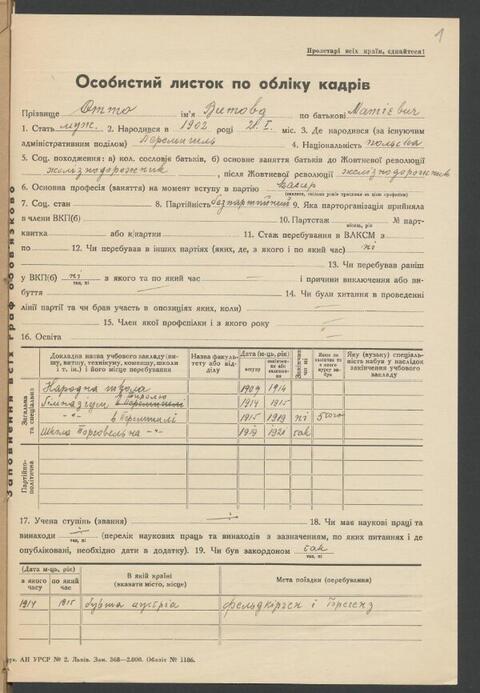 1
Пролетарі всіх країн, єднайтеся!
Особистий листок по обліку кадрів
Прізвище Отто ім'я Витовд по батькові Матієвич
1. Стать муж. 2. Народився в 1902 році 21.I. міс. 3. Де народився (за існуючим
адміністративним поділом) Перемишль 4. Національність польська
5. Соц. походження: а) кол. сословіє батьків, б) основне заняття батьків до Жовтневої революції
желізнодорожник, після Жовтневої революції желізнодорожник
6. Основна професія (заняття) на момент вступу в партію касієр
7. Соц. стан 8. Партійність безпартійний 9. Яка парторганізація прийняла
в члени ВКП(б) 10. Партстаж № парт-
квитка або к/картки 11. Стаж перебування в ВЛКСМ з
по 12. Чи перебував в інших партіях (яких, де, з якого і по який час) ні
13. Чи перебував раніш
у ВКП(б) ні з якого та по який час і причини виключення або ви-
буття 14. Чи були хитання в проведенні
лінії партії та чи брав участь в опозиціях яких, коли)
15. Член якої профспілки і з якого року
16. Освіта
Заповнення всіх граф обов'язково
Докладна назва учбового закладу (ви-
шу, втишу, технікуму, комвишу, школи
і т. ін.) і його місце перебування
Назва факуль-
тету або від-
ділу
Дата (м-ць, рік)
вступу
Закінчив
чи ні
Яку (вузьку) спеціаль-
ність набув у наслідок
закінчення учбового
закладу
Загальна
та спеціальна
Народна школа 1909 1914
Гімназіум в Перемишлі 1914 1915
-"- в Перемишлі 1915 1919 ні 5
Школа Торговельна -"- 1919 1921 так
Партійно-
політична
17. Учена ступінь (звання) 18. Чи має наукові праці та
винаходи (перелік наукових праць та винаходів з зазначенням, по яких питаннях і де
опубліковані, необхідно дати в додатку). 19. Чи був закордоном так
так, ні
(Дата м-ць, рік)
з якого
часу
по який
час
В якій країні
(вказати місто, місце)
Мета поїздки (перебування)
1914 1915 бувша австрія фельдкірхен і Брегенз
рук. АН УРСР № 2. Львів. Зам. 368—2.000. Обліт № 1186.